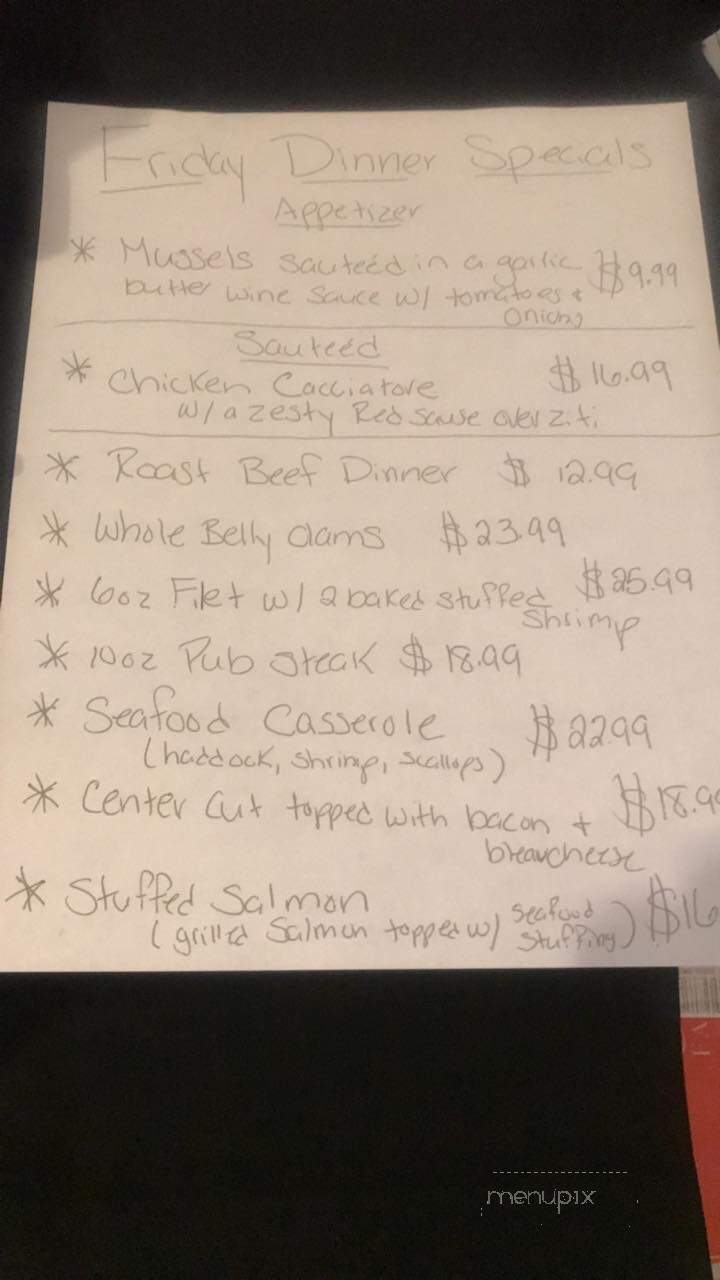 Friday Dinner Specials
Appetizer
* Mussels sauteéd in a garlic $9.99
butter wine sauce w/ tomatoes +
onions
Sauteéd
* Chicken Cacciatore $16.99
w/ a zesty Red sause over ziti
* Roast Beef Dinner $12.99
* Whole Belly Clams $23.99
* 6oz Filet w/ 2 baked stuffed $25.99
Shrimp
* 10oz Pub Steak $18.99
* Seafood Casserole $22.99
(haddock, shrimp, scallops)
* Center Cut topped with bacon + $18.99
* Stuffed Salmon
(grilled Salmon topped w/ seafood stuffing) $16
menupix